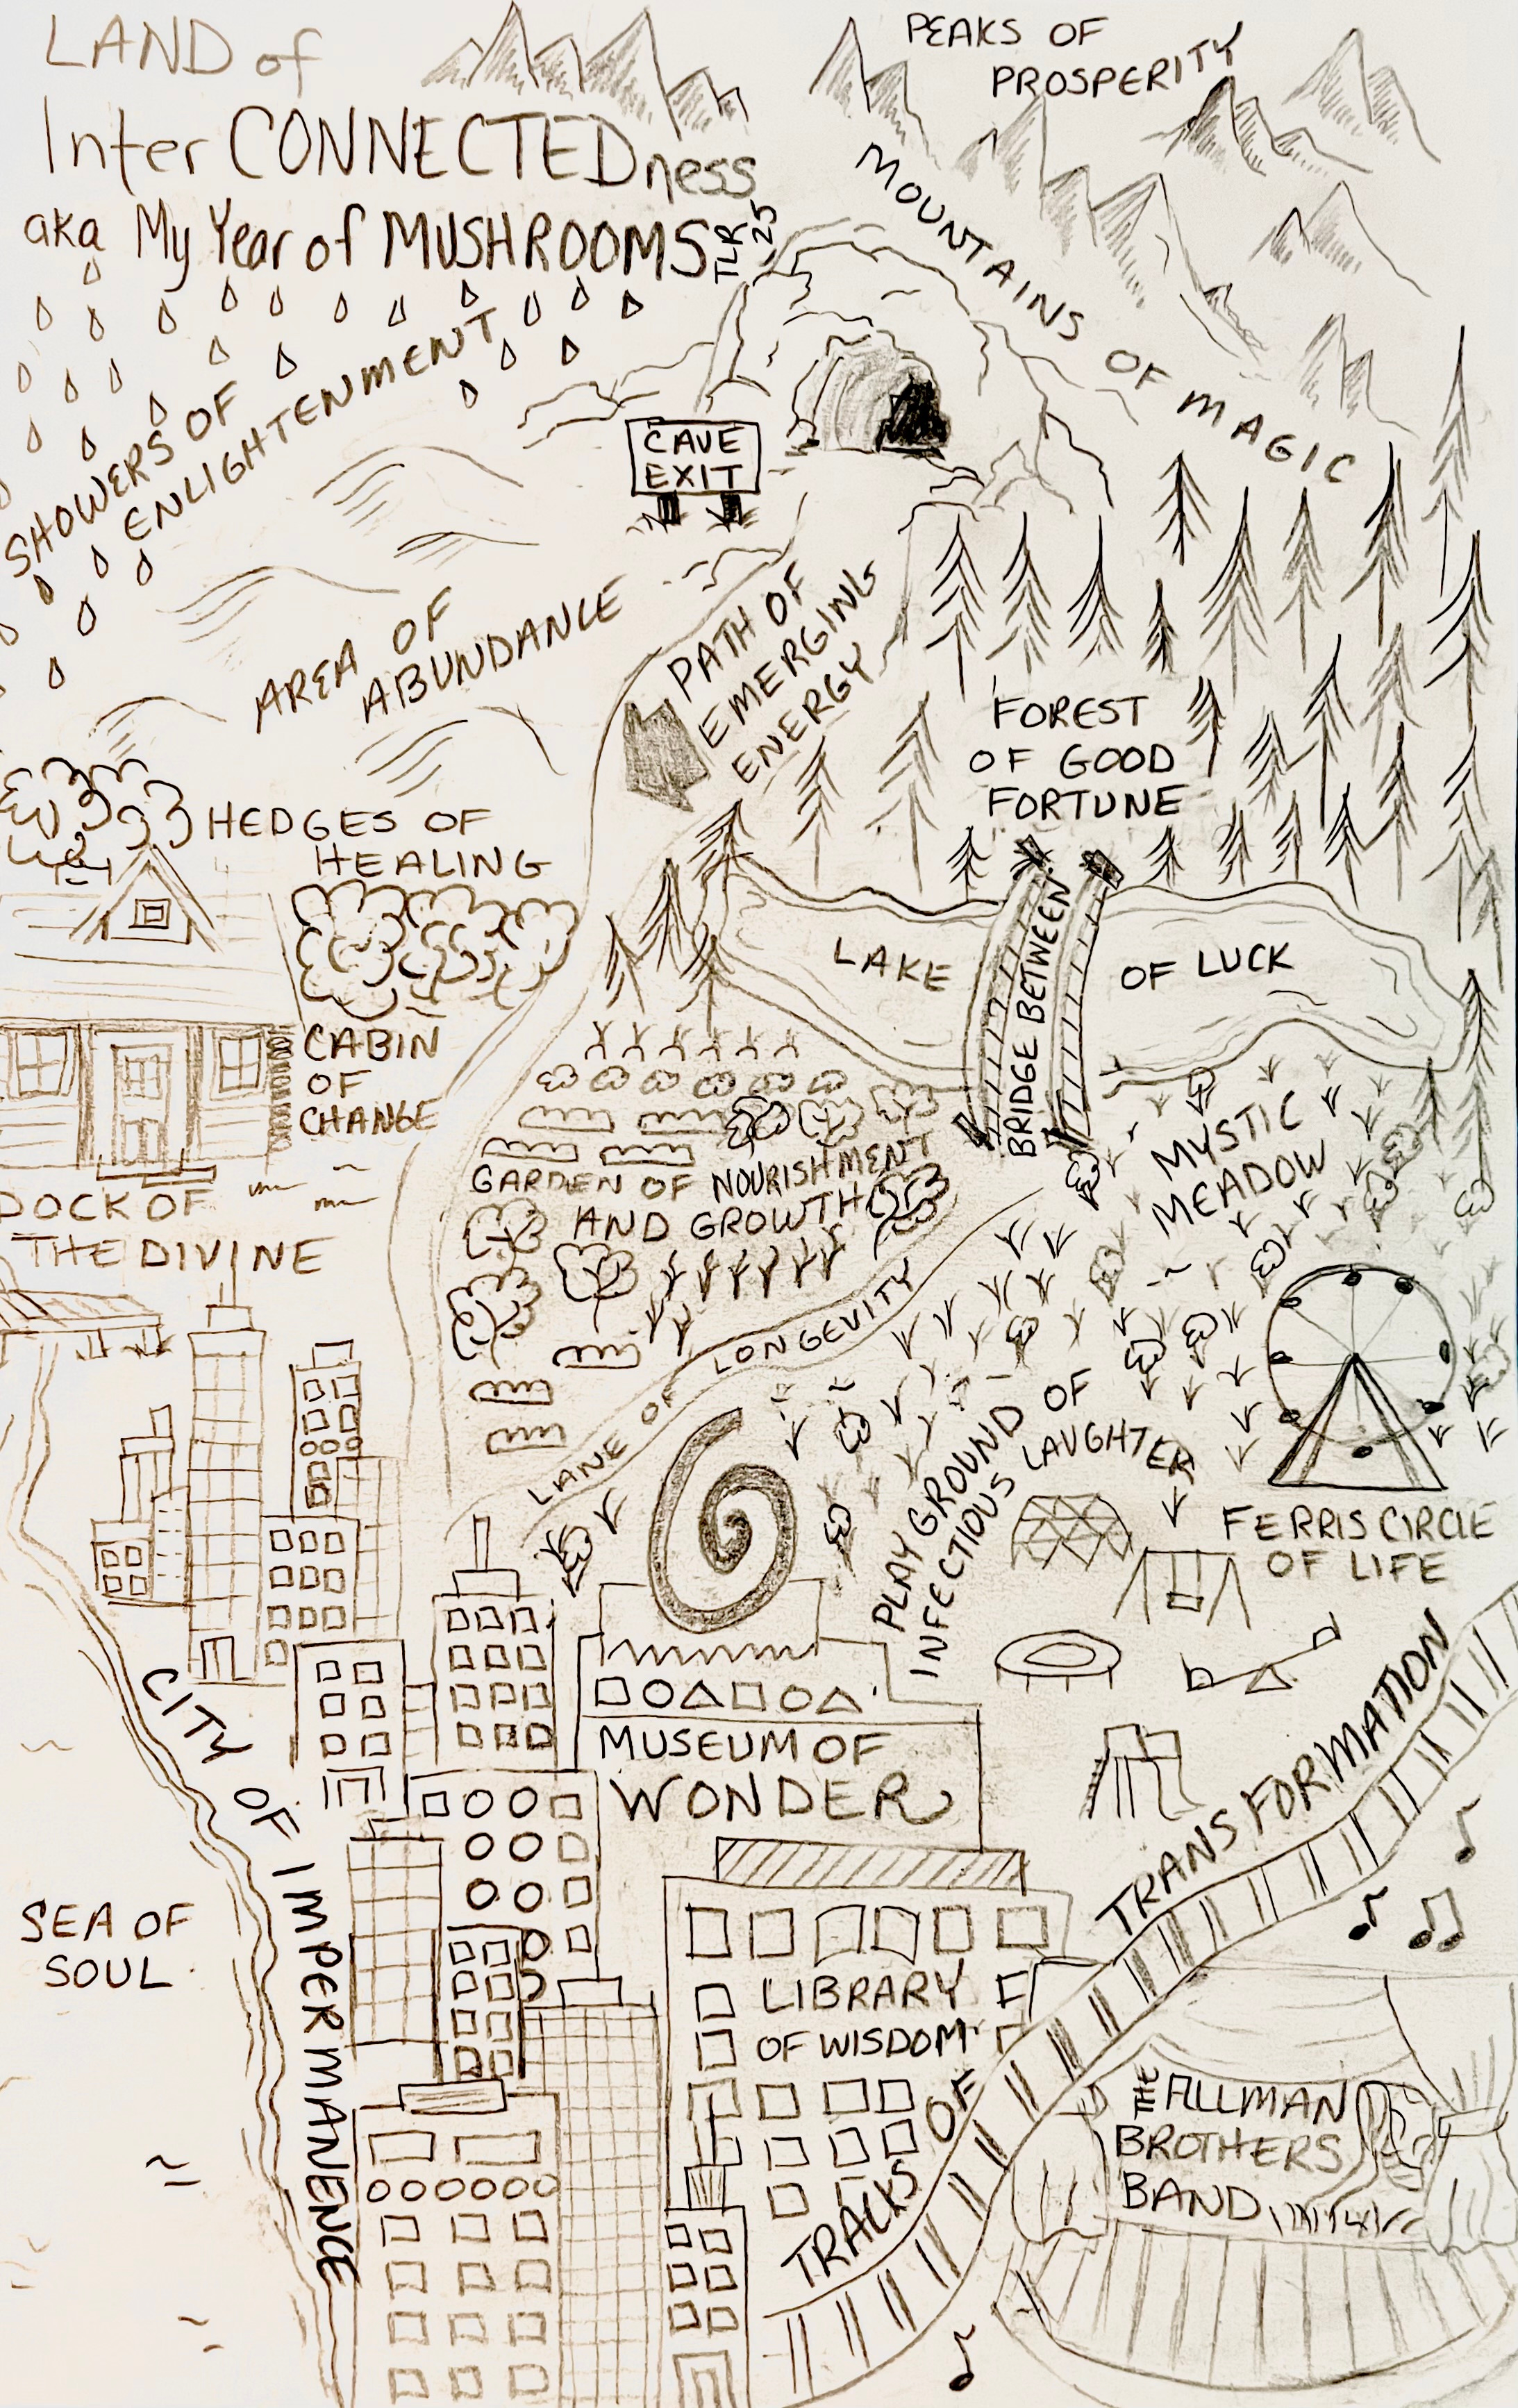 LAND of
InterCONNECTEDness
aka My Year of MUSHROOMS
TLR
25
PEAKS OF
PROSPERITY
MOUNTAINS OF MAGIC
SHOWERS OF
ENLIGHTENMENT
CAVE
EXIT
AREA OF
ABUNDANCE
PATH OF
EMERGING
ENERGY
FOREST
OF GOOD
FORTUNE
HEDGES OF
HEALING
LAKE OF LUCK
BRIDGE BETWEEN
CABIN
OF
CHANGE
MYSTIC
MEADOW
GARDEN OF NOURISHMENT
AND GROWTH
DOCK OF
THE DIVINE
LANE OF LONGEVITY
PLAYGROUND OF
INFECTIOUS LAUGHTER
FERRIS CIRCLE
OF LIFE
CITY OF IMPERMANENCE
MUSEUM OF
WONDER
SEA OF
SOUL
LIBRARY
OF WISDOM
TRACKS OF TRANSFORMATION
THE ALLMAN
BROTHERS
BAND